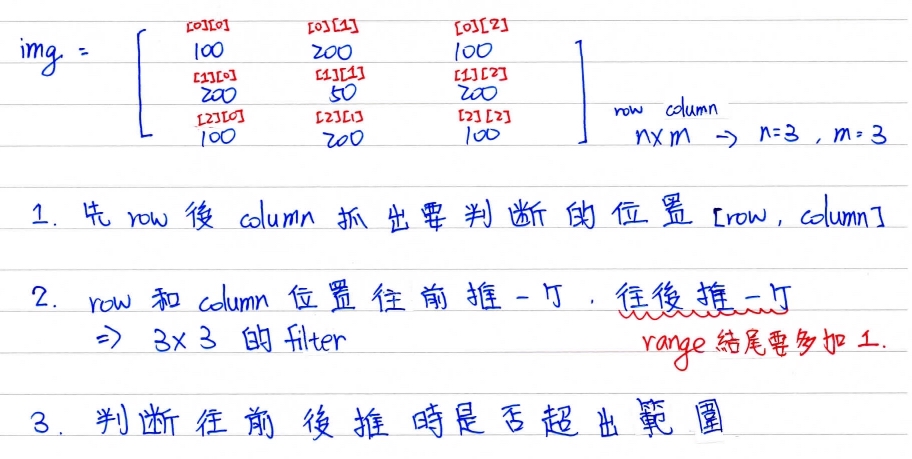 [0][0] [0][1] [0][2]
img = 100 200 100
[1][0] [1][1] [1][2]
200 50 200
[2][0] [2][1] [2][2]
100 200 100
row column
n×m → n=3, m=3
1. 先 row 後 column 抓出要判斷的位置 [row, column]
2. row 和 column 位置往前推一個, 往後推一個
⇒ 3×3 的 filter
range 結尾要多加 1.
3. 判斷往前後推時是否超出範圍